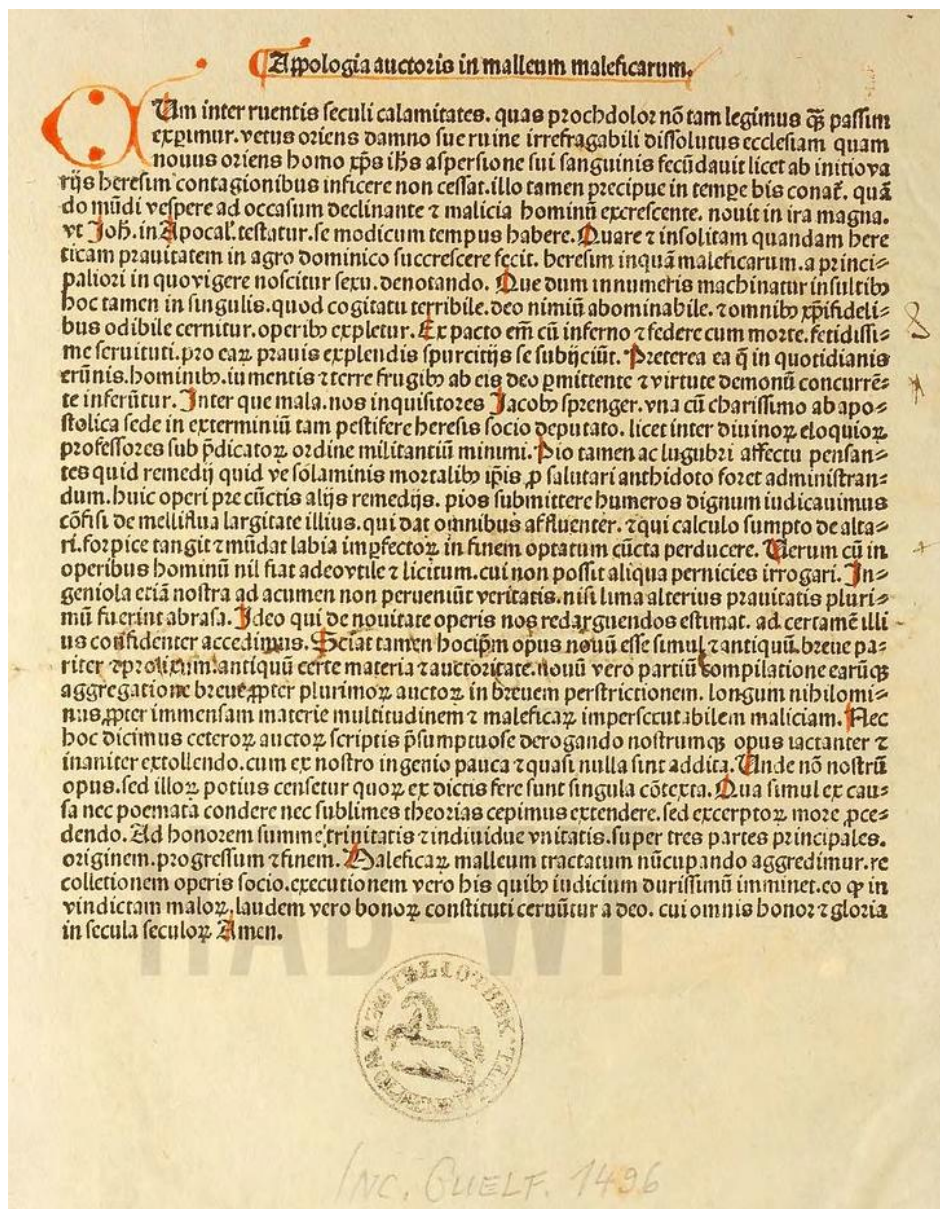 Appologia auctoris in malleum maleficarum.
CUm inter ruentis seculi calamitates. quas prochdolor nō tam legimus q̄ꝫ passim
experimur. vetus oriens damno sue ruine irrefragabili dissolutus ecclesiam quam
nouus oriens homo xp̄s ih̄s aspersione sui sanguinis fecūdauit licet ab initio va
rijs heresum contagionibus inficere non cessat. illo tamen precipue in tempe his conat̄. quā
do mūdi vespere ad occasum declinante ⁊ malicia hominū excrescente. nouit in ira magna.
vt Joh̄. in Apocal̄. testatur. se modicum tempus habere. Quare ⁊ insolitam quandam here
ticam prauitatem in agro dominico succrescere fecit. heresim inquā maleficarum. a princi⸗
paliori in quo vigere noscitur sexu. denotando. Que dum innumeris machinatur insultibꝰ
hoc tamen in singulis. quod cogitatu terribile. deo nimiū abominabile. ⁊ omnibꝰ xp̄ifideli⸗
bus odibile cernitur. operibꝰ expletur. Ex pacto em̄ cū inferno ⁊ federe cum morte. fetidissi⸗
me seruituti. pro eaꝝ prauis explendis spurcitijs se subijciūt. Preterea ea q̄ in quotidianis
erūnis. hominibꝰ. iumentis ⁊ terre frugibꝰ ab eis deo ꝑmittente ⁊ virtute demonū concurrē⸗
te inferūtur. Inter que mala. nos inquisitores Jacobꝰ sprenger. vna cū charissimo ab apo⸗
stolica sede in exterminiū tam pestifere heresis socio deputato. licet inter diuinoꝝ eloquioꝝ
professores sub p̄dicatoꝝ ordine militantiū minimi. Pio tamen ac lugubri affectu pensan⸗
tes quid remedij quid ve solaminis mortalibꝰ ip̄is ꝓ salutari anthidoto foret administran⸗
dum. huic operi pre cūctis alijs remedijs. pios submittere humeros dignum iudicauimus
cōfisi de melliflua largitate illius. qui dat omnibus affluenter. ⁊ qui calculo sumpto de alta⸗
ri. forpice tangit ⁊ mūdat labia imꝑfectoꝝ in finem optatum cūcta perducere. Verum cū in
operibus hominū nil fiat adeo vtile ⁊ licitum. cui non possit aliqua pernicies irrogari. In⸗
geniola etiā nostra ad acumen non perueniūt veritatis. nisi lima alterius prauitatis pluri⸗
mū fuerint abrasa. Ideo qui de nouitate operis nos redarguendos estimat. ad certamē illi
us confidenter accedimus. Sciat tamen hoc ip̄m opus nouū esse simul ⁊ antiquū. breue pa⸗
riter ⁊ prolixum. antiquū certe materia ⁊ auctoritate. nouū vero partiū compilatione earūqꝫ
aggregatione breue ꝓpter plurimoꝝ auctoꝝ in breuem perstrictionem. longum nihilomi⸗
nus ꝓpter immensam materie multitudinem ⁊ maleficaꝝ imperscrutabilem maliciam. Nec
hoc dicimus ceteroꝝ auctoꝝ scriptis p̄sumptuose derogando nostrumqꝫ opus iactanter ⁊
inaniter extollendo. cum ex nostro ingenio pauca ⁊ quasi nulla sint addita. Unde nō nostrū
opus. sed illoꝝ potius censetur quoꝝ ex dictis fere sunt singula cōtexta. Qua simul ex cau⸗
sa nec poemata condere nec sublimes theorias cepimus extendere. sed excerptoꝝ more ꝓce⸗
dendo. Ad honorem summe trinitatis ⁊ indiuidue vnitatis. super tres partes principales.
originem. progressum ⁊ finem. Maleficaꝝ malleum tractatum nūcupando aggredimur. re
collectionem operis socio. executionem vero his quibꝰ iudicium durissimū imminet. eo ꝙ in
vindictam maloꝝ. laudem vero bonoꝝ constituti cernūtur a deo. cui omnis honor ⁊ gloria
in secula seculoꝝ Amen.
INC. GUELF. 1496